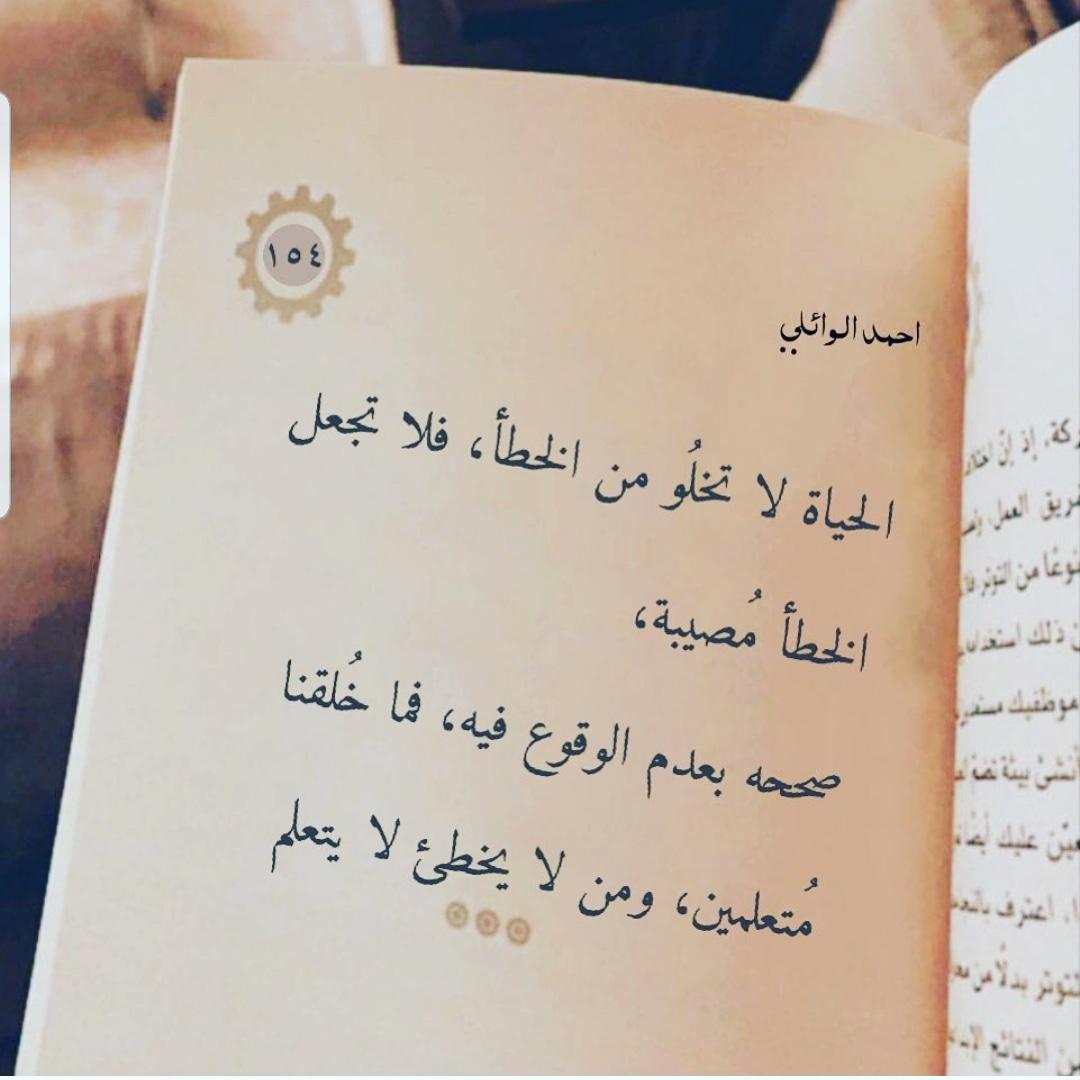 ١٥٤
احمد الوائلي
الحياة لا تخلُو من الخطأ، فلا تجعل
الخطأ مُصيبة،
صححه بعدم الوقوع فيه، فما خُلقنا
مُتعلمين، ومن لا يخطئ لا يتعلم
إذ إنّ
فريق العمل
من التوتر
ذلك
موظفيك
بيئة
عليك أيضًا
اعترف
التوتر بدلًا من
النتائج